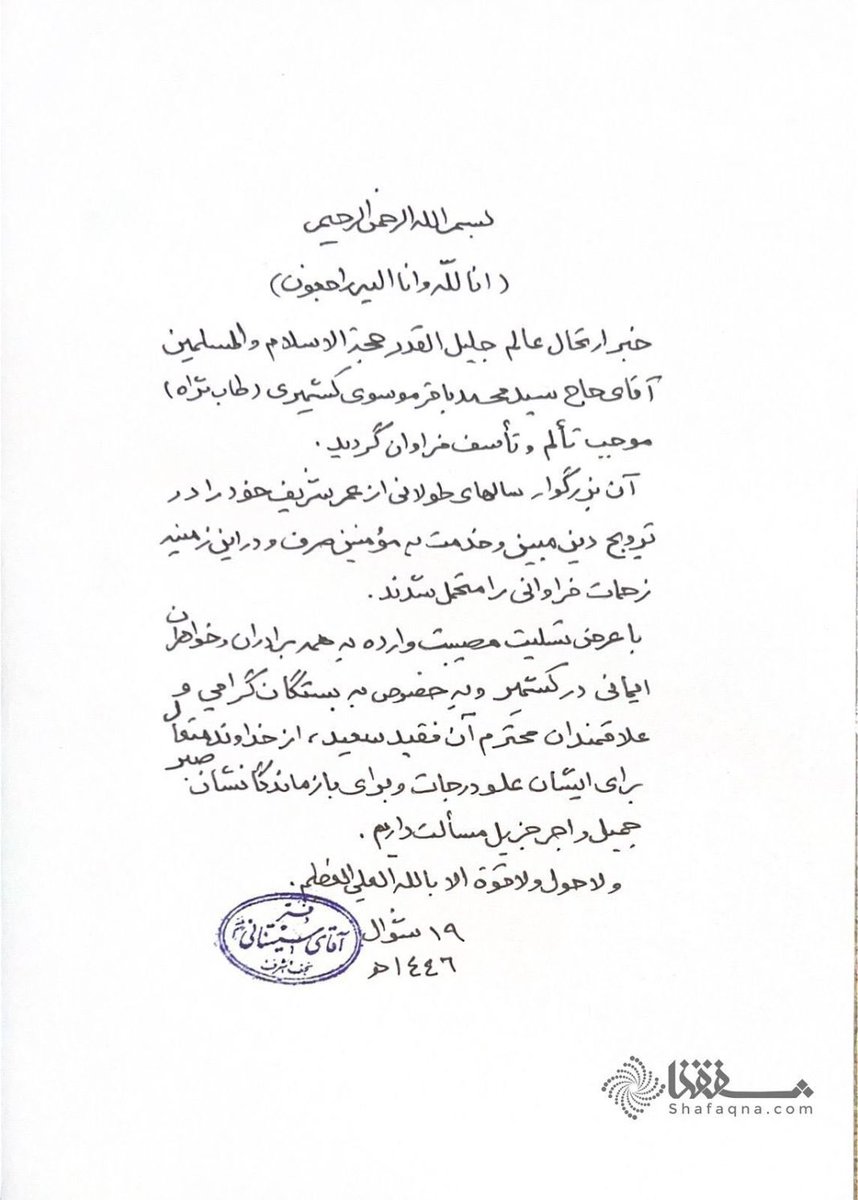 بسم الله الرحمن الرحیم
(انا لله وانا الیه راجعون)
خبر ارتحال عالم جلیل القدر حجة الاسلام والمسلمین
آقای حاج سید محمد باقر موسوی کشمیری (طاب ثراه)
موجب تألم و تأسف فراوان گردید.
آن بزرگوار سالهای طولانی از عمر شریف خود را در
ترویج دین مبین و خدمت به مؤمنین صرف و در این زمینه
زحمات فراوانی را متحمل شدند.
با عرض تسلیت مصیبت وارده به همه برادران وخواهران
ایمانی در کشمیر و به خصوص به بستگان گرامی و
علاقمندان محترم آن فقید سعید، از خداوند متعال
برای ایشان علو درجات وبرای بازماندگانشان صبر
جمیل و اجر جزیل مسألت داریم.
ولا حول ولا قوة الا بالله العلي العظیم.
١٩ شوال
١٤٤٦هـ
دفتر
آقای سیستانی
نجف اشرف
شفقنا
Shafaqna.com